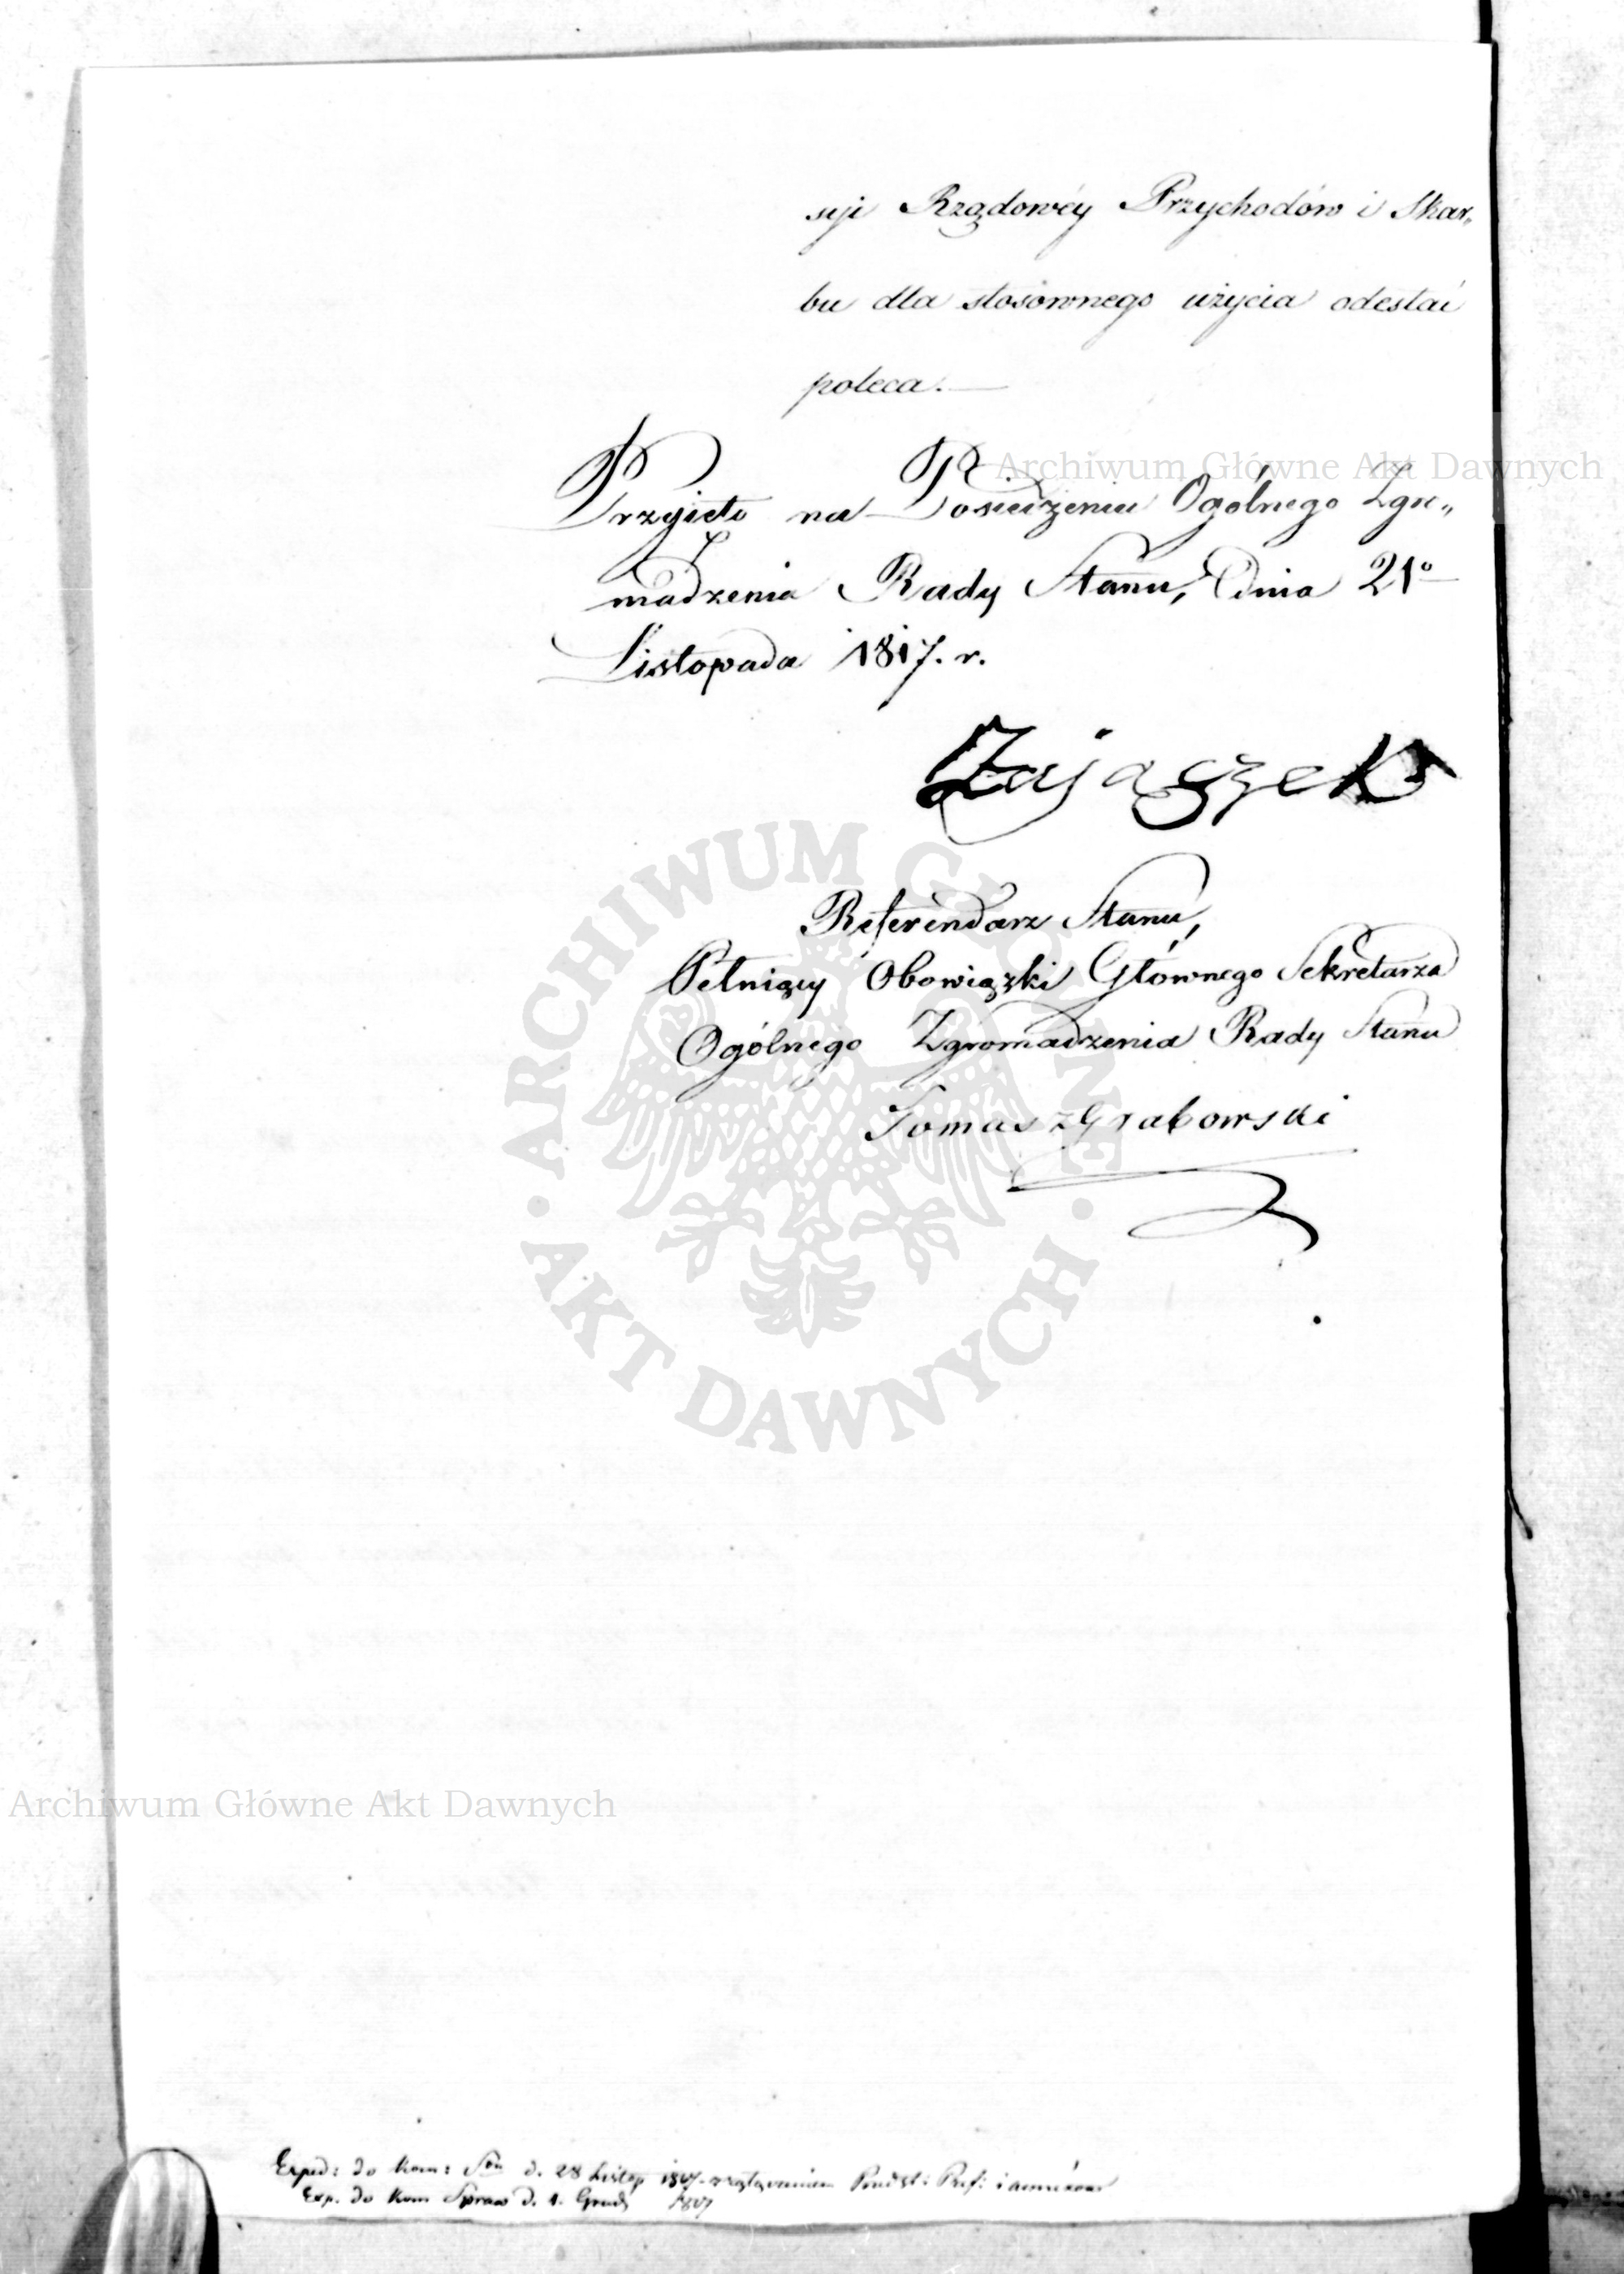 syi Rządowéy Przychodów i Skar„
bu dla stosownego użycia odesłać
poleca.—
Archiwum Główne Akt Dawnych
Przyięto na Posiedzeniu Ogólnego Zgro„
madzenia Rady Stanu, Dnia 21º
Listopada 1817. r.
Zajączek
Referendarz Stanu,
Pełniący Obowiązki Głównego Sekretarza
Ogólnego Zgromadzenia Rady Stanu
Tomasz Grabowski
ARCHIWUM GŁÓWNE • AKT DAWNYCH •
Archiwum Główne Akt Dawnych
Exped: do Kom: d. 28 Listop 1817. z załączeniem i annexow
Exp. do Kom Spraw d. 1. Grud 1817